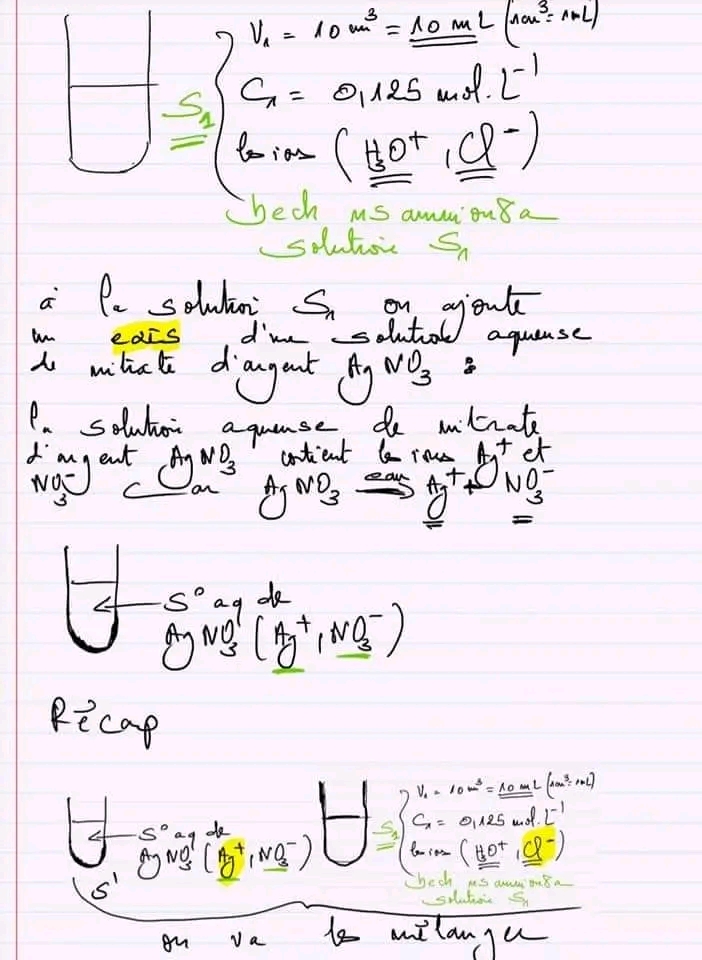 V₁ = 10 cm³ = 10 mL (1cm³ = 1mL)
S₁
C₁ = 0,125 mol.L⁻¹
les ions (H₃O⁺, Cl⁻)
solution S₁
à la solution S₁ on ajoute
un excès d'une solution aqueuse
de nitrate d'argent AgNO₃ :
la solution aqueuse de nitrate
d'argent AgNO₃ contient les ions Ag⁺ et
NO₃⁻ car AgNO₃ eau Ag⁺ + NO₃⁻
S° aq de
AgNO₃ (Ag⁺, NO₃⁻)
Récap
S° aq de
AgNO₃ (Ag⁺, NO₃⁻)
S'
V₁ = 10 cm³ = 10 mL (1cm³ = 1mL)
S₁
C₁ = 0,125 mol.L⁻¹
les ions (H₃O⁺, Cl⁻)
solution S₁
on va les mélanger